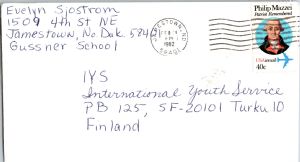 Evelyn Sjostrom
1509 4th St NE
Jamestown, No Dak. 58401
Gussner School
JAMESTOWN, ND
PM
1982
58401
Philip Mazzei
Patriot Remembered
USAirmail
40c
IYS
International Youth Service
PB 125, SF-20101 Turku 10
Finland